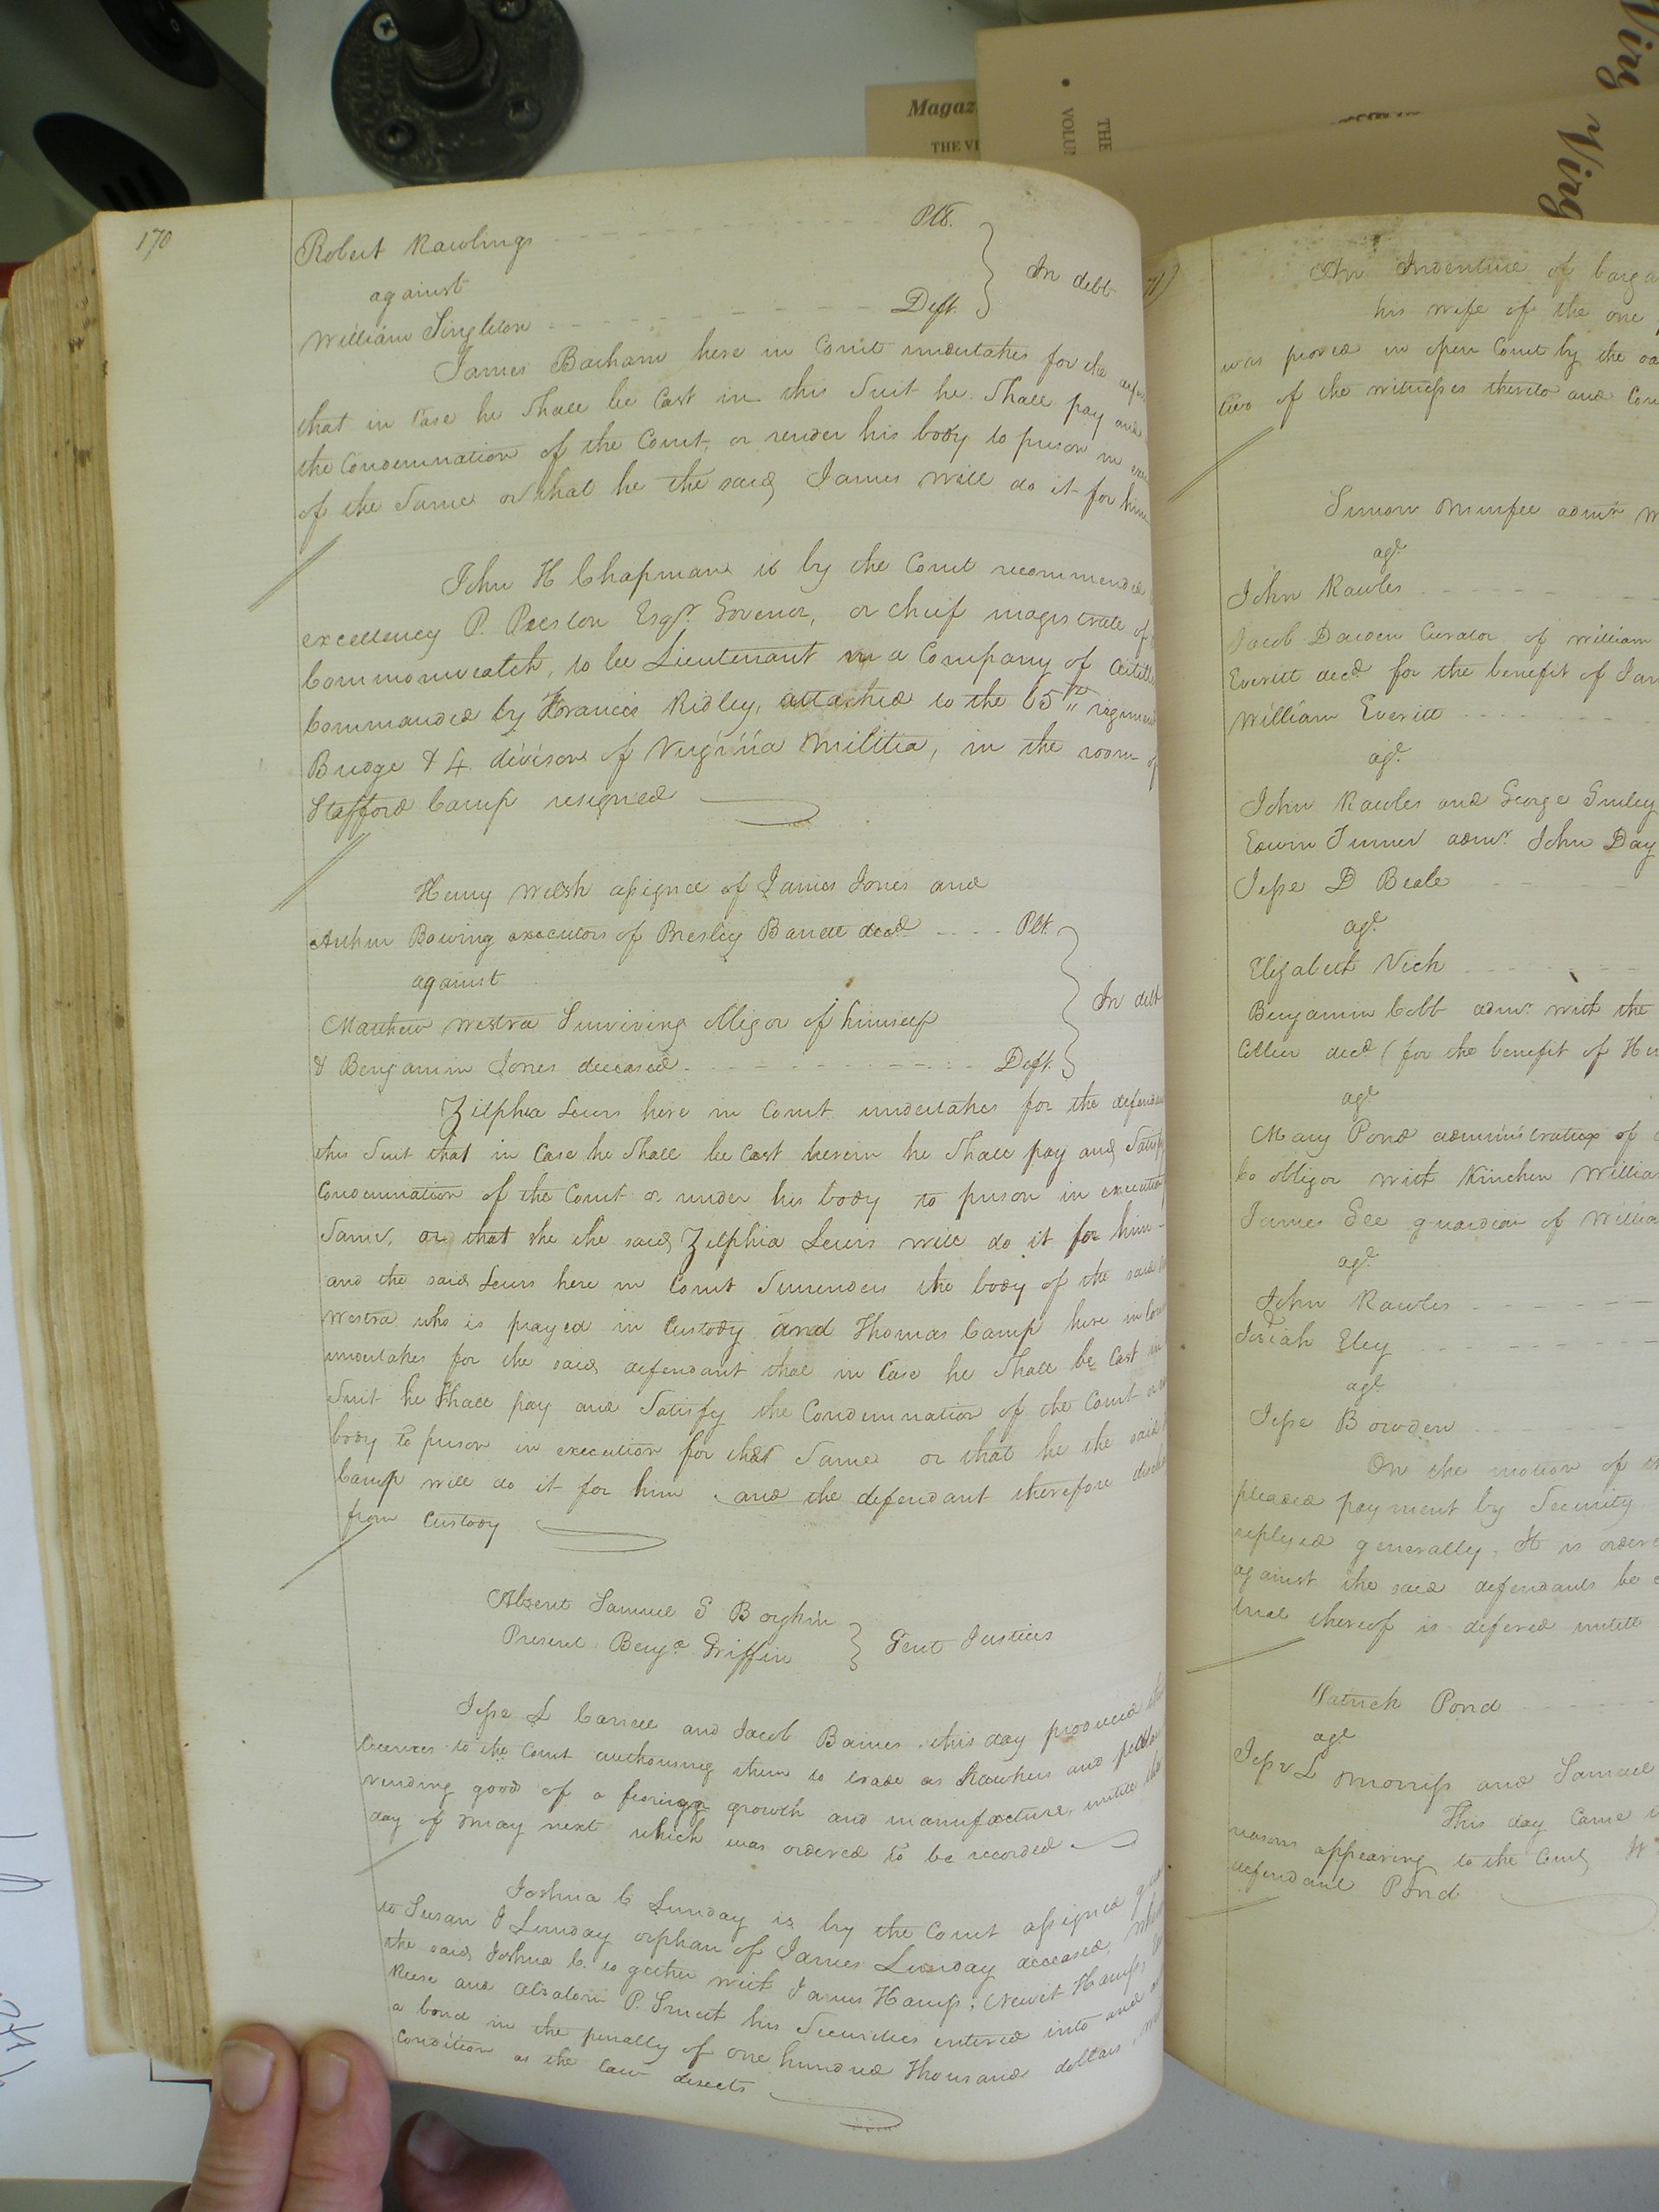 Magaz
THE VI
THE
VOLU
Virg
Virg
170
Robert Rawlings Plt.
against
William Singleton Deft.
In debt
James Barham here in Court undertakes for the
that in Case he Shall be Cast in this Suit he Shall pay and
the Condemnation of the Court, or render his body to prison in
of the Same or that he the said James will do it for him
John H Chapman is by the Court recommended
excellency P. Preston Esqr. Govenor, or cheif magistrate of
Commonwealth, to be Lieutenant in a Company of
Commanded by Francis Ridley, attached to the 65th
Bridge & 4. divison of Virginia Militia, in the room of
Stafford Camp resigned
Henry Welsh assignee of James Jones and
Arthur Bowing executors of Bresley Barrett decd Plt.
against
Matthew Westra Surviving obligor of himself
& Benjamin Jones deceased Deft.
In debt
Zilphia Lewis here in Court undertakes for the
this Suit that in Case he Shall be Cast herein he Shall pay and
Condemnation of the Court or render his body to prison in
Same, or that she the said Zilphia Lewis will do it for him
and the said Lewis here in Court Surrenders the body of the said
Westra who is prayed in Custody and Thomas Camp here in
undertakes for the said defendant that in Case he Shall be Cast in
Suit he Shall pay and Satisfy the Condemnation of the Court
body to prison in execution for that Same or that he the said
Camp will do it for him and the defendant therefore
from Custody
Absent Samuel
Present Benja. Griffin
Gent Justices
Jesse L Carrell and Jacob Barnes this day produced
licences to the Court authorising them to trade as Hawkers and
vending good of a foreign growth and manufacture, untill the
day of may next which was ordered to be recorded
Joshua C Lunday is by the Court assigned
to Susan J Lunday orphan of James Lunday deceased,
the said Joshua C. to geather with James Harris, Newit Harris
Reese and Absalom P. Smith his Securities entered into and
a bond in the penalty of one hundred thousand dollars,
Condition as the Law directs
An Indenture of
his wife of the one
was proved in open Court by the
two of the witnesses thereto and
Simon Murfee admr
agt
John Rawles
Jacob Darden Curator of William
Everitt decd for the benefit of
William Everitt
agt
John Rawles and George Gurley
Edwin Turner admr. John Day
Jesse D Beale
agt
Elizabeth Vick
Benjamin Cobb admr. with the
Collier decd (for the benefit of
agt
Mary Pond administratrix of
Co obligor with Kinchen
James Gee guardian of
agt
John Rawles
Josiah Eley
agt
Jesse Bowden
On the motion of
pleaded payment by Security
replyed generally, It is
against the said defendants be
trial thereof is defered untill
Patrick Pond
agt
Jesse L Morriss and Samuel
This day Came
reasons appearing to the Court,
defendant Pond